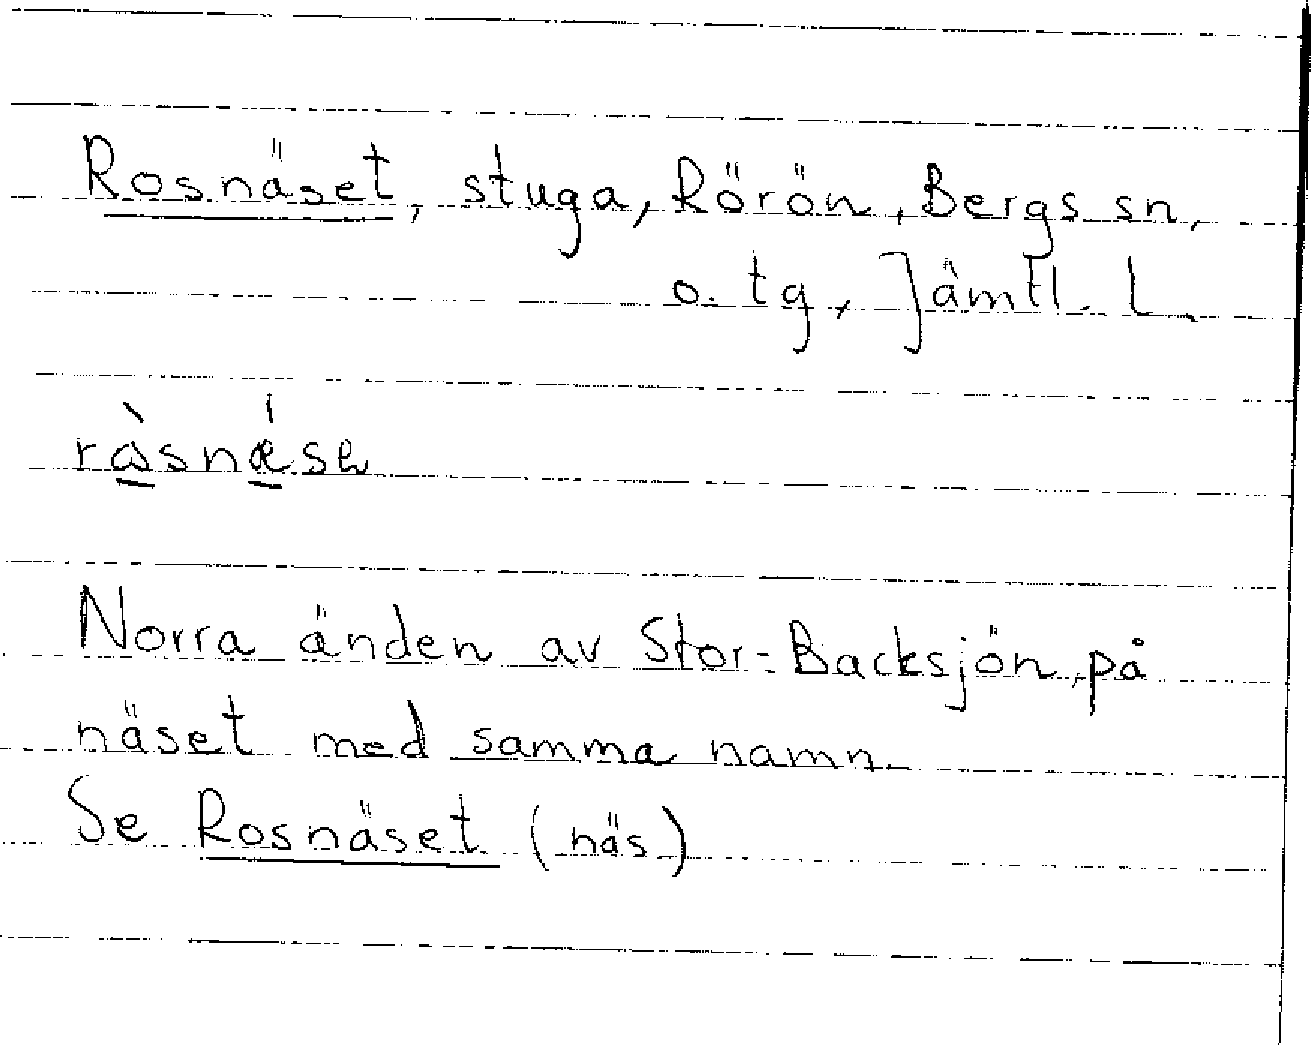 Rosnäset, stuga, Rörön, Bergs sn,
o. tg, Jämtl. L
Norra änden av Stor-Backsjön, på
näset med samma namn.
Se Rosnäset (näs)